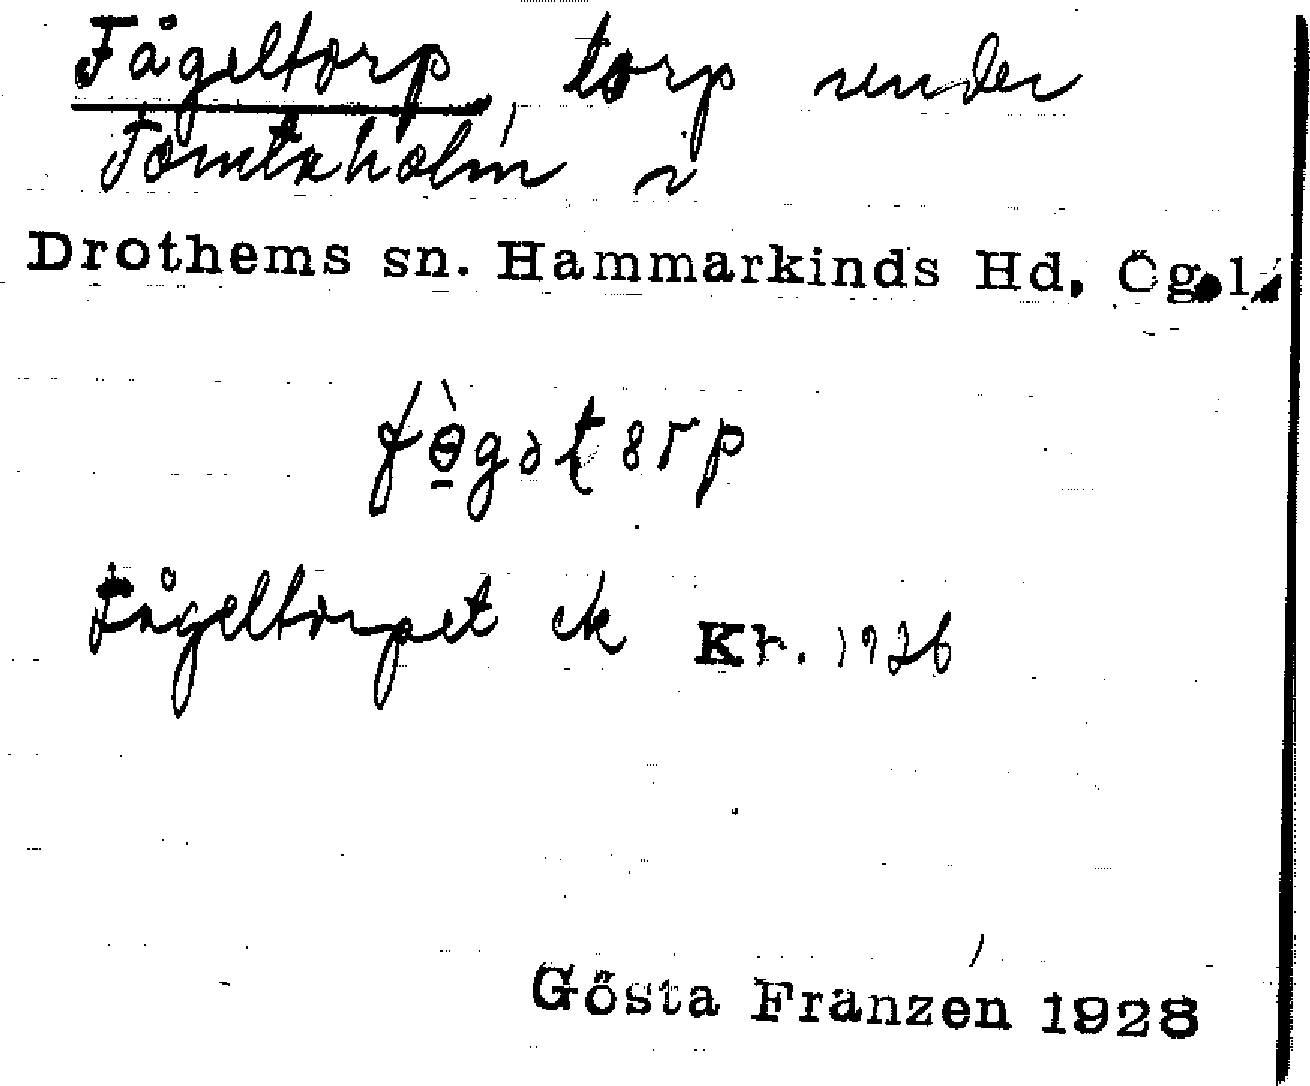 Fågeltorp, torp under
Tomtaholm i
Drothems sn. Hammarkinds Hd. Ög.l.
Fågeltorpet ek Kr. 1926
Gösta Franzén 1928